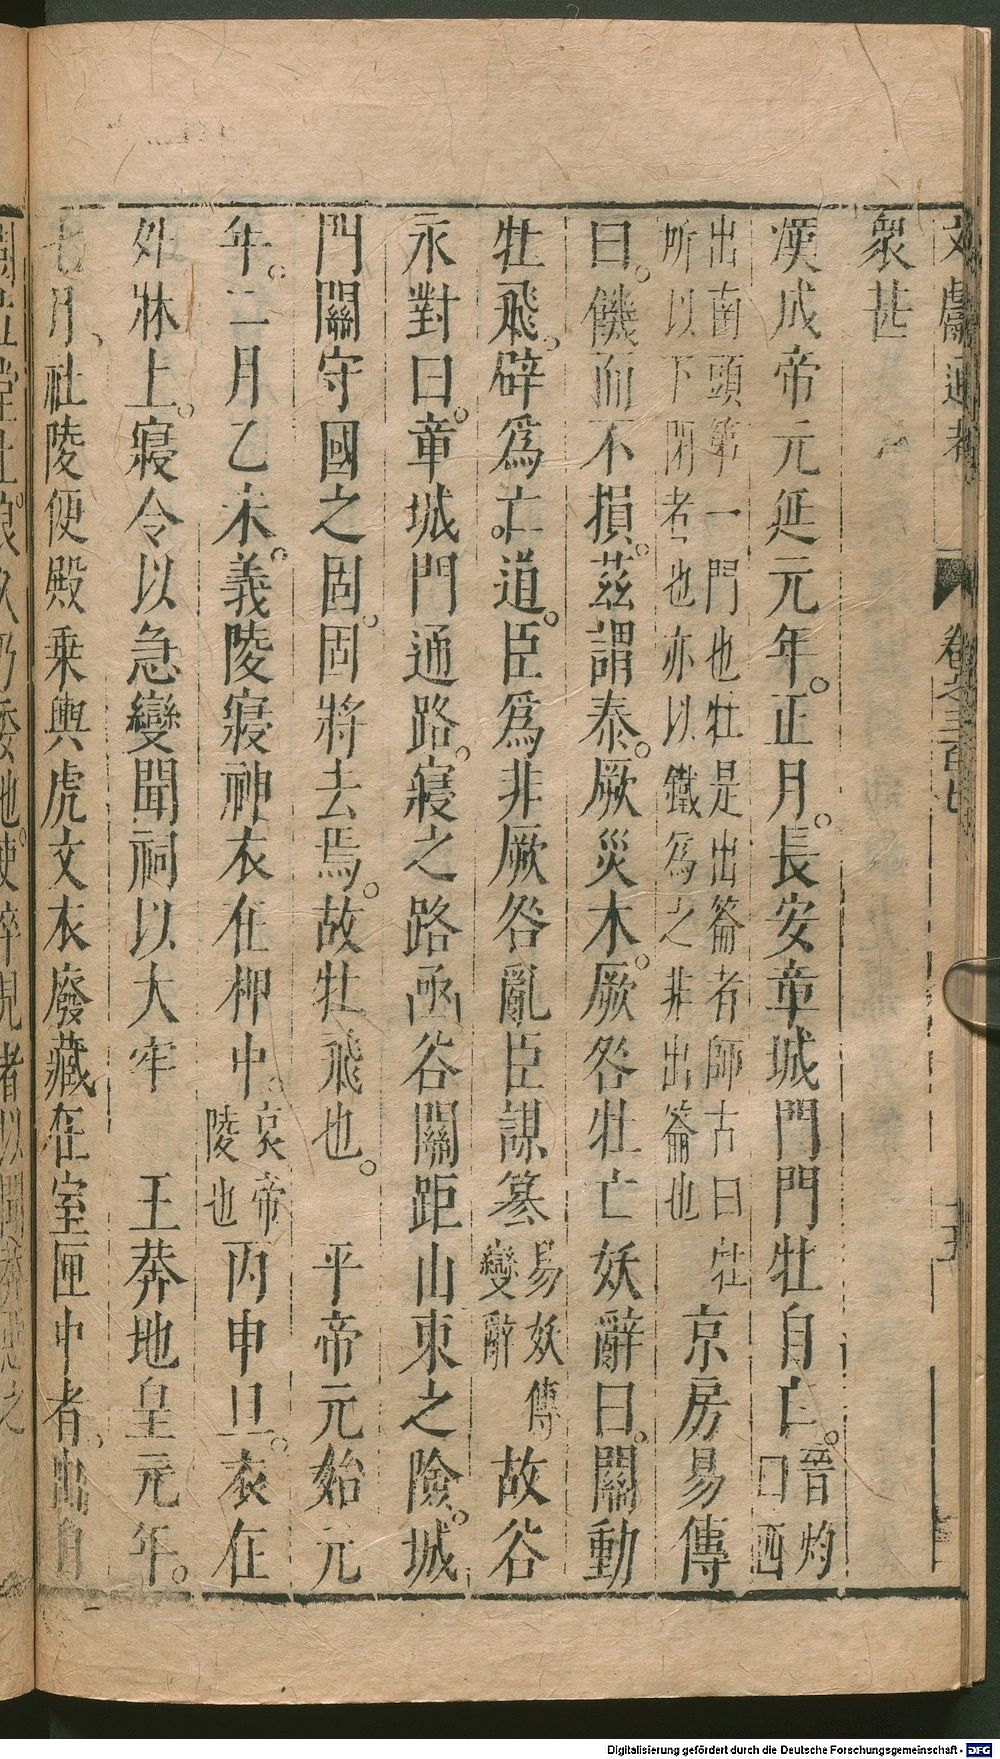 文獻通考 卷之三百七 十五
衆甚
漢成帝元延元年。正月。長安章城門門牡自亡。晉灼曰西
出南頭第一門也牡是出籥者師古曰牡所以下閉者也亦以鐵爲之非出籥也京房易傳
曰。饑而不損。茲謂泰。厥災木。厥咎牡亡妖辭曰。關動
牡飛。辟爲亡。道。臣爲非厥咎亂臣謀簒易妖傳變辭故谷
永對曰。章城門通路。寢之路函谷關距山東之險。城
門關守國之固。固將去焉。故牡飛也。 平帝元始元
年。二月乙未。義陵寢神衣在柙中。哀帝陵也丙申旦。衣在
外牀上。寢令以急變聞祠以大牢 王莽地皇元年。
七月、杜陵便殿乘輿虎文衣廢藏在室匣中者、出自
樹立堂上。良久乃委地。使卒見者以聞莽惡之
Digitalisierung gefördert durch die Deutsche Forschungsgemeinschaft - DFG